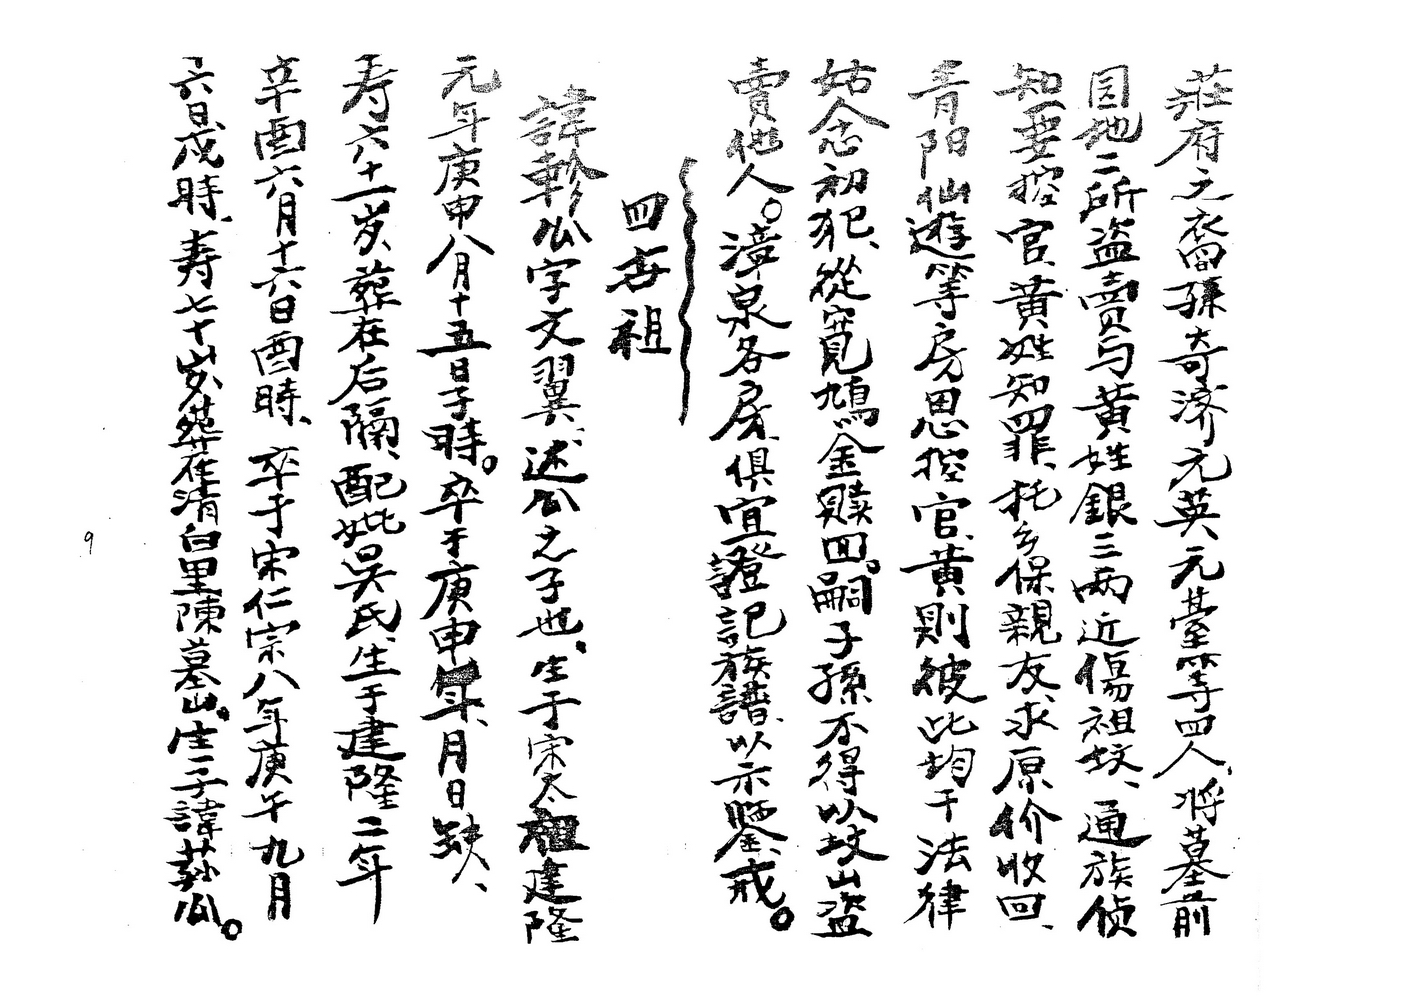 莊府之裔裔孫奇济元英元薹等四人、將墓前
园地二所盗卖与黄姓銀三两近傷祖坟、通族侦
知要控官、黄姓知罪、托乡保親友求原价收回、
青阳仙遊等房思控官、黄則彼此均干法律
姑念初犯、從寬鳩金贖回。嗣子孫不得以坟山盗
賣他人。漳泉各房、俱宜證記族譜、以示鑒戒。
四世祖
諱軫公字文翼、述公之子也、生于宋太祖建隆
元年庚申八月十五日子時。卒于庚申年、月日缺、
寿六十一岁、葬在后隔、配妣吴氏、生于建隆二年
辛酉六月十六日酉時、卒于宋仁宗八年庚午九月
六日戍時、寿七十岁葬在清白里陳墓山。生一子諱䓀公。
9